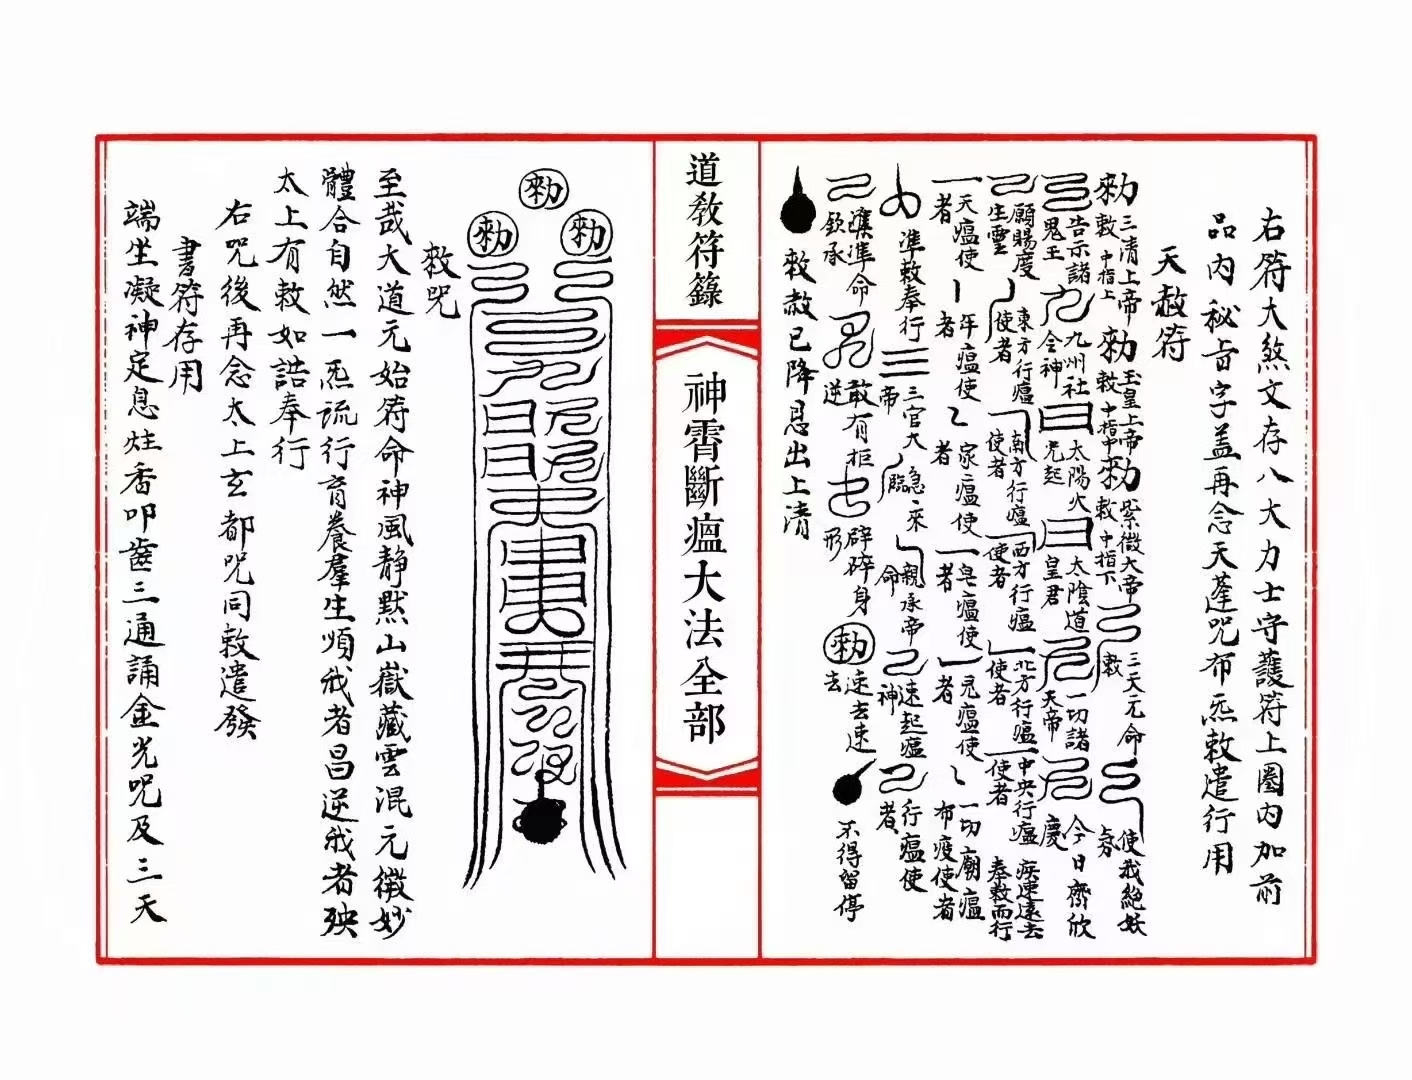 右符大煞文存八大力士守護符上圈內加前
品內秘旨字蓋再念天蓬咒布炁敕遣行用
天赦符
勑 三清上帝敕中指上 勑 玉皇上帝敕中指中 勑 紫微大帝敕中指下 三天元命敕 使我絕妖
告示諸鬼王 九州社令神 太陽火光起 太陰道皇君 一切諸天帝 今日齊欣慶
願賜度生靈 東方行瘟使者 南方行瘟使者 西方行瘟使者 北方行瘟使者 中央行瘟使者 疾速遠去奉敕而行
天瘟使者 年瘟使者 家瘟使者 皂瘟使者 灵瘟使者 一切廟瘟布疫使者
準敕奉行 三官大帝 急來臨 親承帝命 速起瘟神 行瘟使者
準命欽承 敢有拒逆 碎身形 勑 速去速去 不得留停
敕赦已降急出上清
道教符籙
神霄斷瘟大法全部
勑 勑 勑
敕咒
至哉大道元始符命神風靜默山嶽藏雲混元微妙
體合自然一炁流行育養羣生順我者昌逆我者殃
太上有敕如誥奉行
右咒後再念太上玄都咒同敕遣發
書符存用
端坐凝神定息炷香叩齒三通誦金光咒及三天